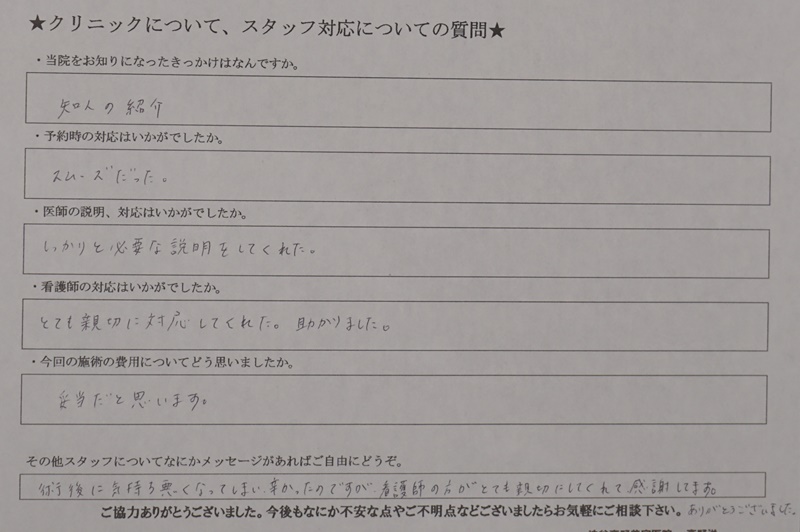 ★クリニックについて、スタッフ対応についての質問★
・当院をお知りになったきっかけはなんですか。
知人の紹介
・予約時の対応はいかがでしたか。
スムーズだった。
・医師の説明、対応はいかがでしたか。
しっかりと必要な説明をしてくれた。
・看護師の対応はいかがでしたか。
とても親切に対応してくれた。助かりました。
・今回の施術の費用についてどう思いましたか。
妥当だと思います。
その他スタッフについてなにかメッセージがあればご自由にどうぞ。
術後に気持ち悪くなってしまい、辛かったのですが、看護師の方がとても親切にしてくれて感謝してます。
ご協力ありがとうございました。今後もなにか不安な点やご不明点などございましたらお気軽にご相談下さい。ありがとうございました。